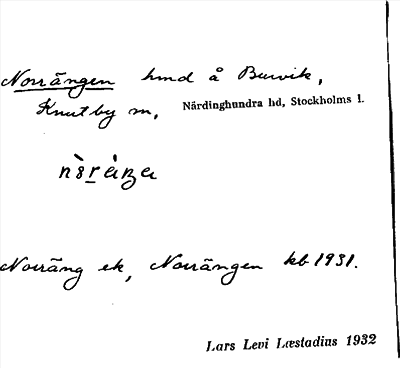 Norrängen hmd å Burvik,
Knutby sn, Närdinghundra hd, Stockholms l.
Norräng ek, Norrängen kb 1931.
Lars Levi Læstadius 1932